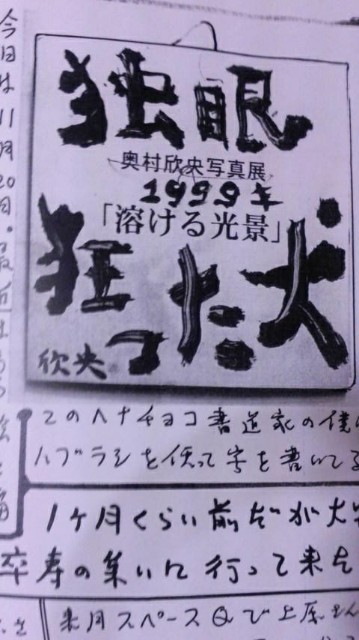 独眼
奥村欣央写真展
1999年
「溶ける光景」
狂った犬
欣央
今日は11月20日。最近は
このヘナチョコ書道家の僕
ハブラシを使って字を書いてる
1ヶ月くらい前だが大
卒寿の集いに行って来た
来月スペースQで上原さん